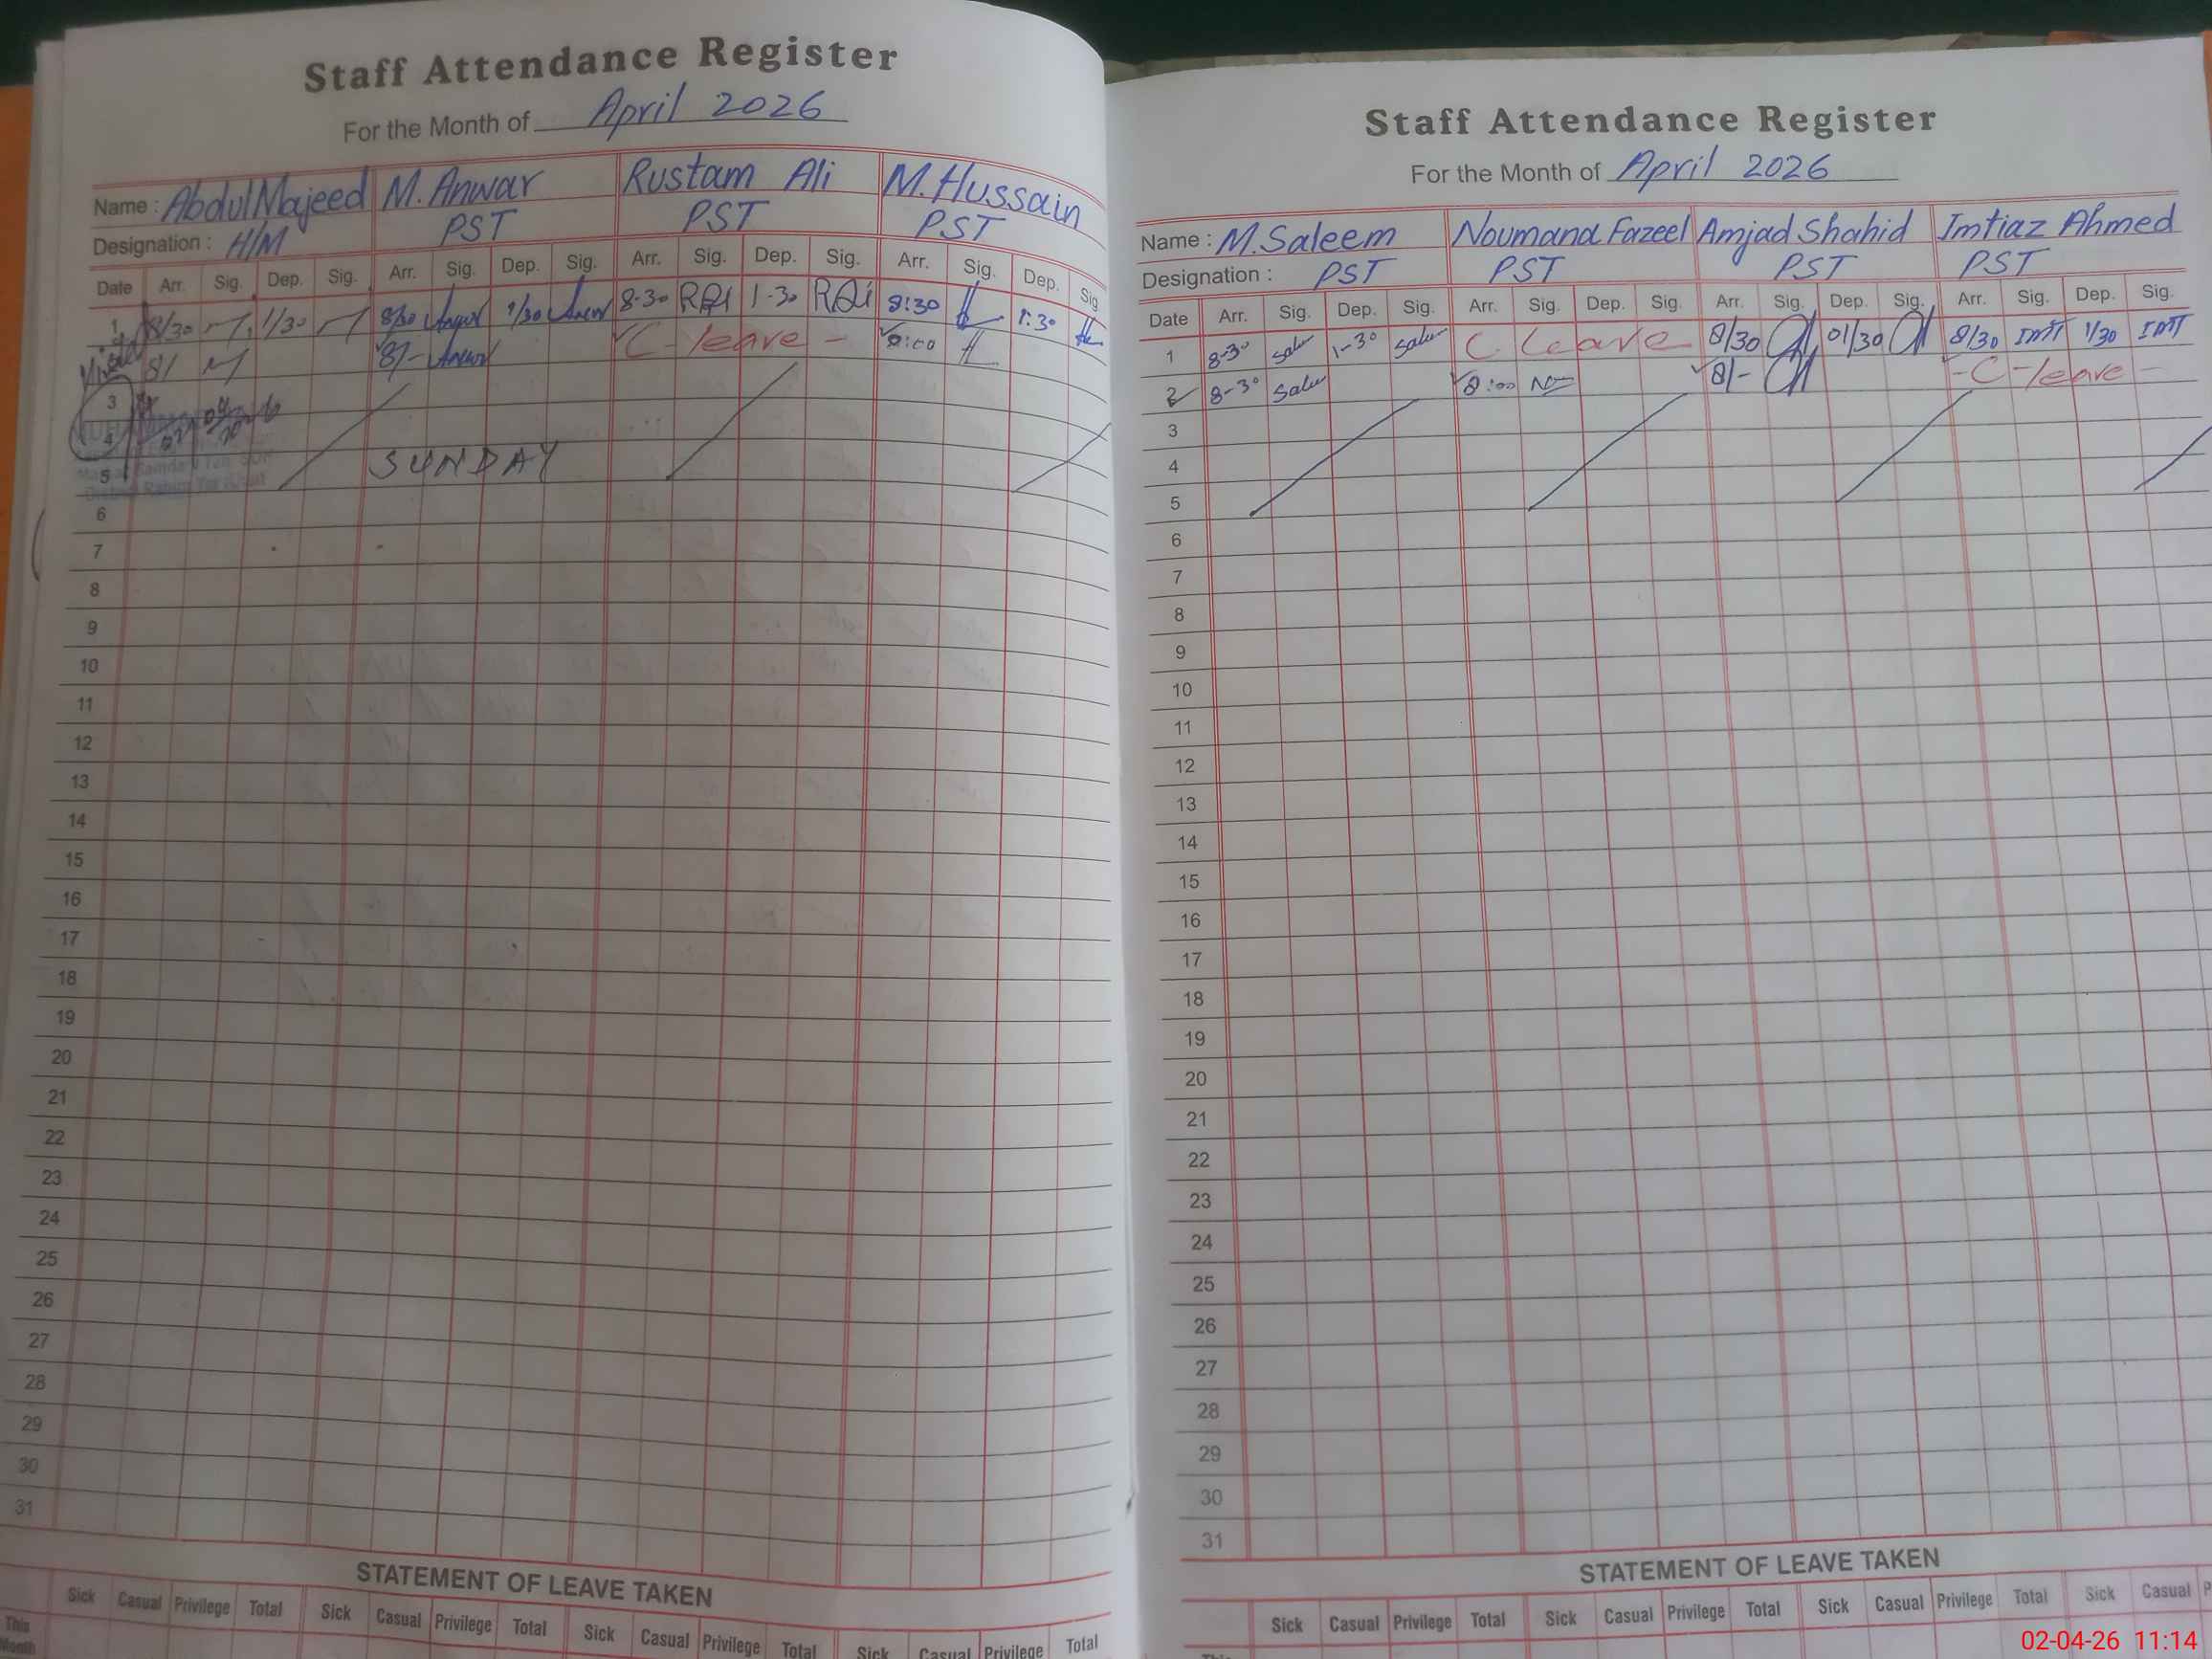 Staff Attendance Register
For the Month of April 2026
Name : Abdul Majeed M. Anwar Rustam Ali M. Hussain
Designation : H/M PST PST PST
Date Arr. Sig. Dep. Sig. Arr. Sig. Dep. Sig. Arr. Sig. Dep. Sig. Arr. Sig. Dep. Sig
1 8/30 1/30 8/30 Anwar 1/30 Anwar 8-30 RAli 1-30 RAli 8:30 1:30
8/ 8/- Anwar C-leave - 8:00
3
4
5 SUNDAY
6
7
8
9
10
11
12
13
14
15
16
17
18
19
20
21
22
23
24
25
26
27
28
29
30
31
STATEMENT OF LEAVE TAKEN
Sick Casual Privilege Total Sick Casual Privilege Total Sick Casual Privilege Total Sick Casual Privilege Total
This
Month
Staff Attendance Register
For the Month of April 2026
Name : M. Saleem Noumana Fazeel Amjad Shahid Imtiaz Ahmed
Designation : PST PST PST PST
Date Arr. Sig. Dep. Sig. Arr. Sig. Dep. Sig. Arr. Sig. Dep. Sig. Arr. Sig. Dep. Sig.
1 8-30 1-30 C. Leave 8/30 01/30 8/30 IMT 1/30 IMT
2 8-30 8:00 8/- -C-leave-
3
4
5
6
7
8
9
10
11
12
13
14
15
16
17
18
19
20
21
22
23
24
25
26
27
28
29
30
31
STATEMENT OF LEAVE TAKEN
Sick Casual Privilege Total Sick Casual Privilege Total Sick Casual Privilege Total Sick Casual
02-04-26 11:14